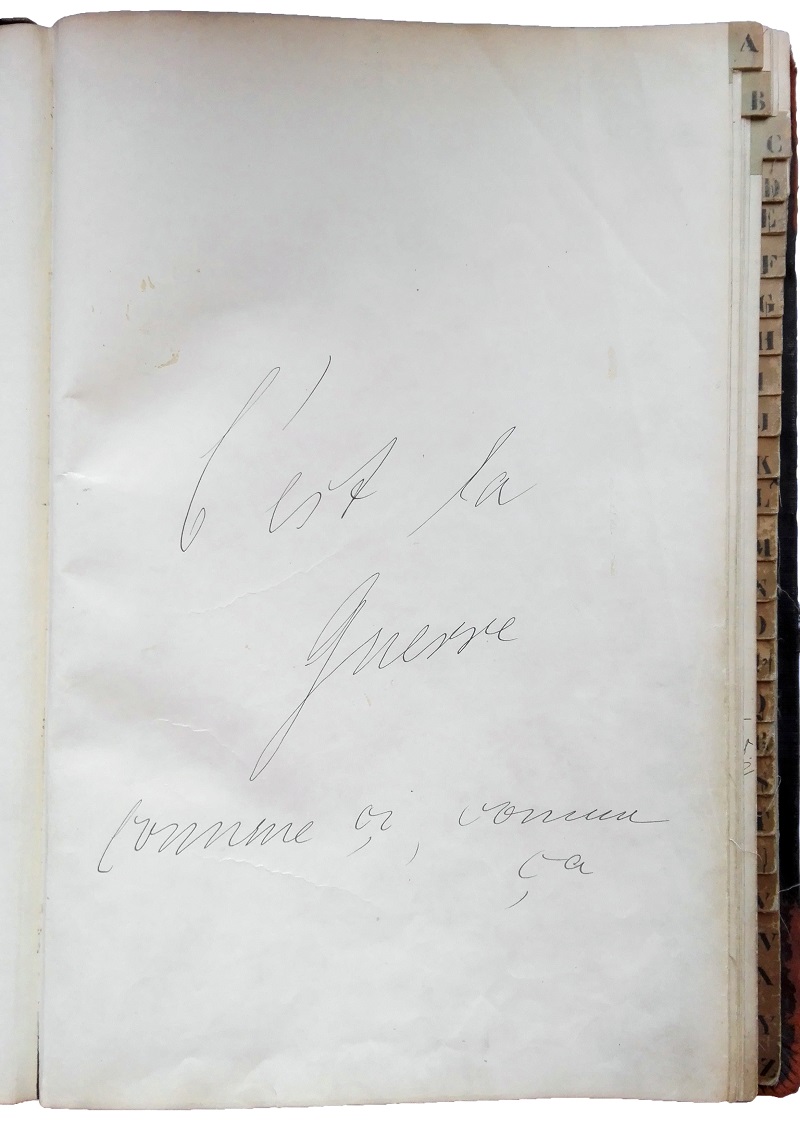 C'est la
Guerre
Comme çi, comme
ça
A
B
C
D
E
F
G
H
I
J
K
L
M
N
O
Q
S
T
V
Y
Z